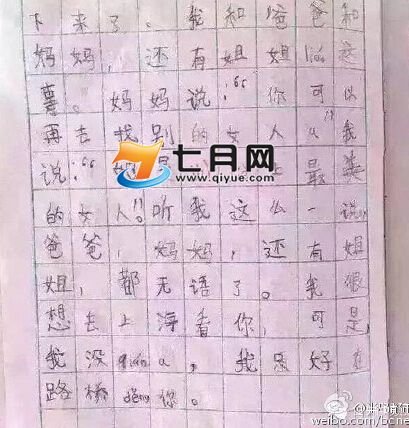 下来了。我和爸爸和
妈妈，还有姐姐liáo这
薯。妈妈说：“你可以
再去找别的女人”我
说：“最美
七月网
www.qiyue.com
的女人！”听我这么一说，
爸爸，妈妈，还有姐
姐，都无语了。我很
想去上海看你，可是，
我没qián a，我只好在
路桥děng你。
weibo.com/bcne